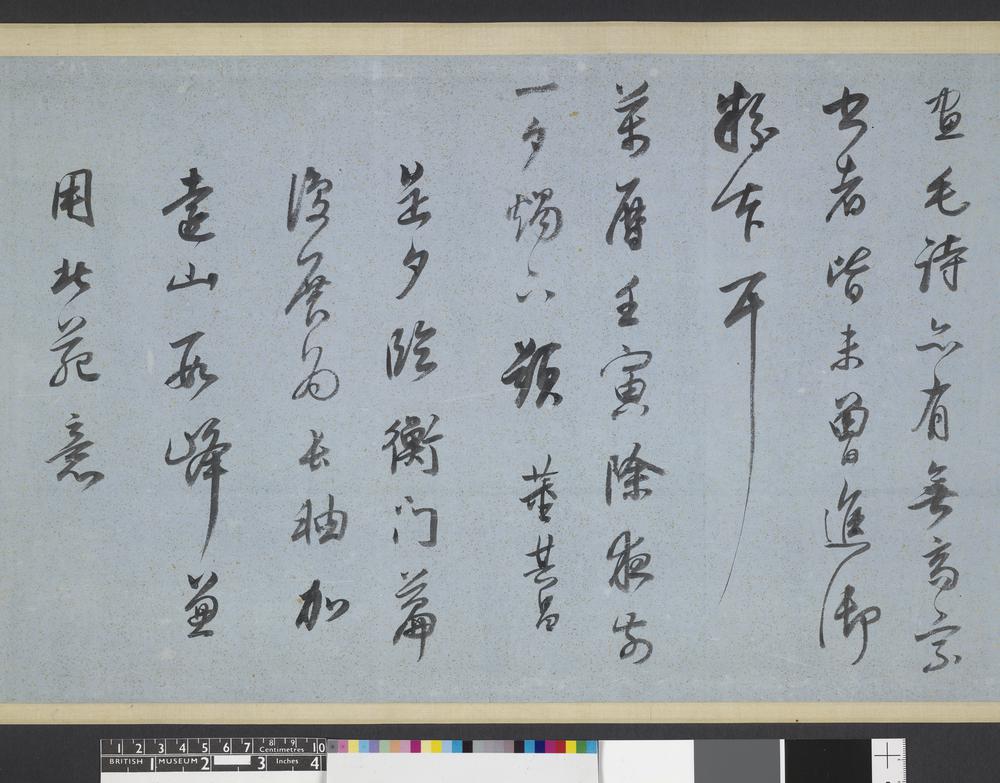 畫毛詩亦有無高宗
書者皆未曾進御
粉本耳
萬曆壬寅除夜前
一夕燭下題 董其昌
是夕臨衡門篇
復展為長軸加
遠山數峰兼
用北苑意
1 2 3 4 5 6 7 8 9 10
Centimetres
BRITISH 1 MUSEUM 2 3 Inches 4